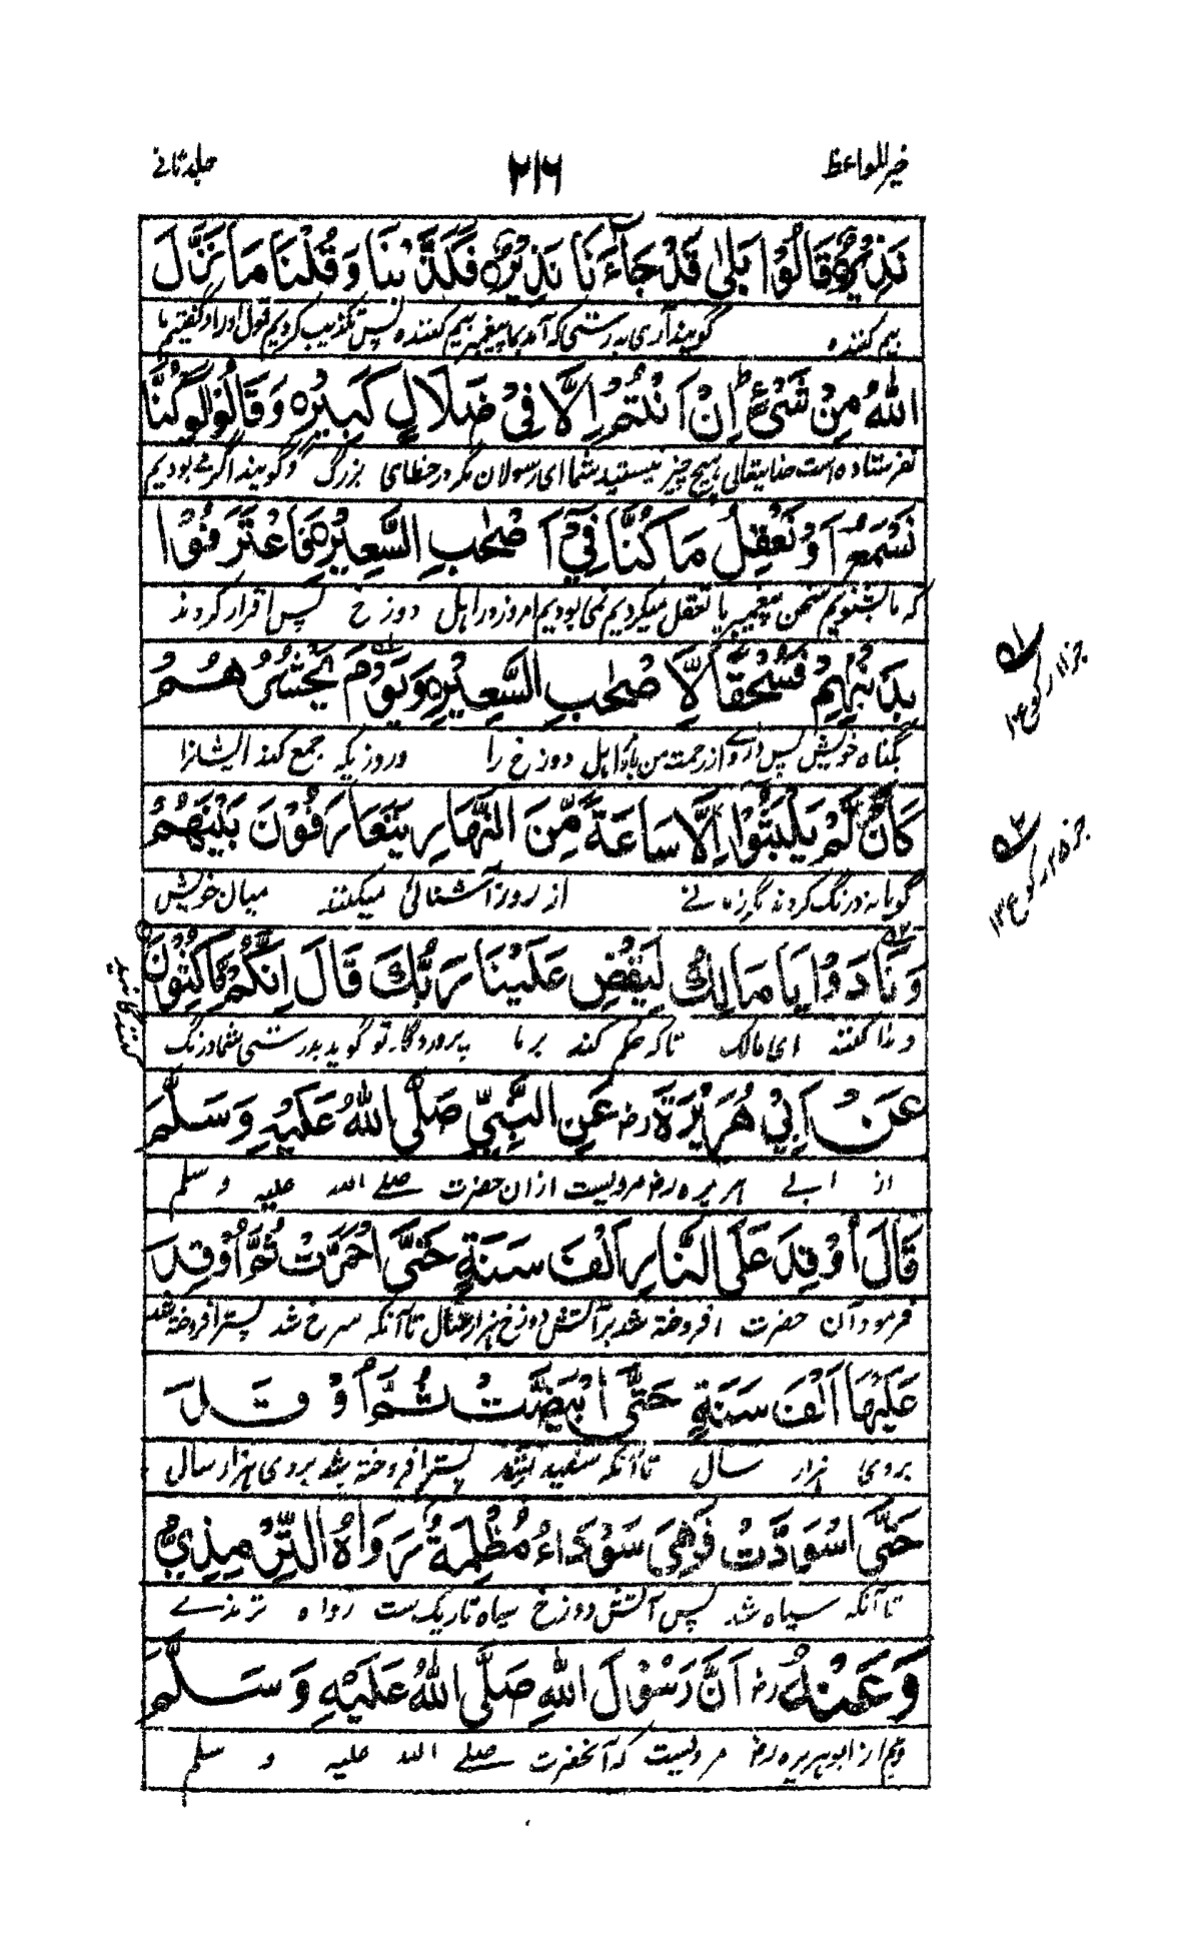 خیرالمواعظ
۲۱۶
جلد ثانے
نَذِيْرٌ قَالُوْا بَلٰى قَدْ جَآءَنَا نَذِيْرٌ فَكَذَّبْنَا وَقُلْنَا مَا نَزَّلَ
بیم کننده گویند آری بدرستی که آمد بما پیغمبر بیم کننده پس تکذیب کردیم قول او را و گفتیم ما
اللّٰهُ مِنْ شَيْءٍ اِنْ اَنْتُمْ اِلَّا فِيْ ضَلَالٍ كَبِيْرٍ وَقَالُوْا لَوْ كُنَّا
نفرستاده است خدایتعالی هیچ چیز نیستید شما ای رسولان مگر در خطای بزرگ و گویند اگر مے بودیم
نَسْمَعُ اَوْ نَعْقِلُ مَا كُنَّا فِيْ اَصْحٰبِ السَّعِيْرِ فَاعْتَرَفُوْا
که ما بشنویم سخن پیغمبر یا تعقل میکردیم نمی بودیم امروز در اهل دوزخ پس اقرار کردند
بِذَنْبِهِمْ فَسُحْقًا لِّاَصْحٰبِ السَّعِيْرِ وَيَوْمَ يَحْشُرُهُمْ
بگناه خویش پس دوری از رحمت من باد اهل دوزخ را وروزیکه جمع کند ایشانرا
جز ۱۱ رکوع
كَاَنْ لَّمْ يَلْبَثُوْا اِلَّا سَاعَةً مِّنَ النَّهَارِ يَتَعَارَفُوْنَ بَيْنَهُمْ
گویا نه درنگ کردند مگر زمانے از روز آشنائی میکنند میان خویش
جز ۲۵ رکوع ۱۳
وَنَادَوْا يَا مَالِكُ لِيَقْضِ عَلَيْنَا رَبُّكَ قَالَ اِنَّكُمْ مَّاكِثُوْنَ
و ندا کنند ای مالک تا که حکم کند بر ما پروردگار تو گوید بدرستی شما درنگ
کنندگانید
عَنْ اَبِيْ هُرَيْرَةَ رض عَنِ النَّبِيِّ صَلَّى اللّٰهُ عَلَيْهِ وَسَلَّمَ
از ابے هریره رض مرویست ازان حضرت صلے الله علیه و سلم
قَالَ اُوْقِدَ عَلَى النَّارِ اَلْفَ سَنَةٍ حَتّٰى احْمَرَّتْ ثُمَّ اُوْقِدَ
فرمود آن حضرت افروخته شد بر آتش دوزخ هزار سال تا آنکه سرخ شد پستر افروخته شد
عَلَيْهَا اَلْفَ سَنَةٍ حَتّٰى ابْيَضَّتْ ثُمَّ اُوْقِدَ
بروی هزار سال تا آنکه سفید شد پستر افروخته شد بروی هزار سال
حَتّٰى اسْوَدَّتْ فَهِيَ سَوْدَاءُ مُظْلِمَةٌ رَوَاهُ التِّرْمِيذِيُّ
تا آنکه سیاه شد پس آتش دوزخ سیاه تاریک ست رواه ترمذے
وَعَنْهُ رض اَنَّ رَسُوْلَ اللّٰهِ صَلَّى اللّٰهُ عَلَيْهِ وَسَلَّمَ
وهم از ابو هریره رض مرویست که آنحضرت صلے الله علیه و سلم